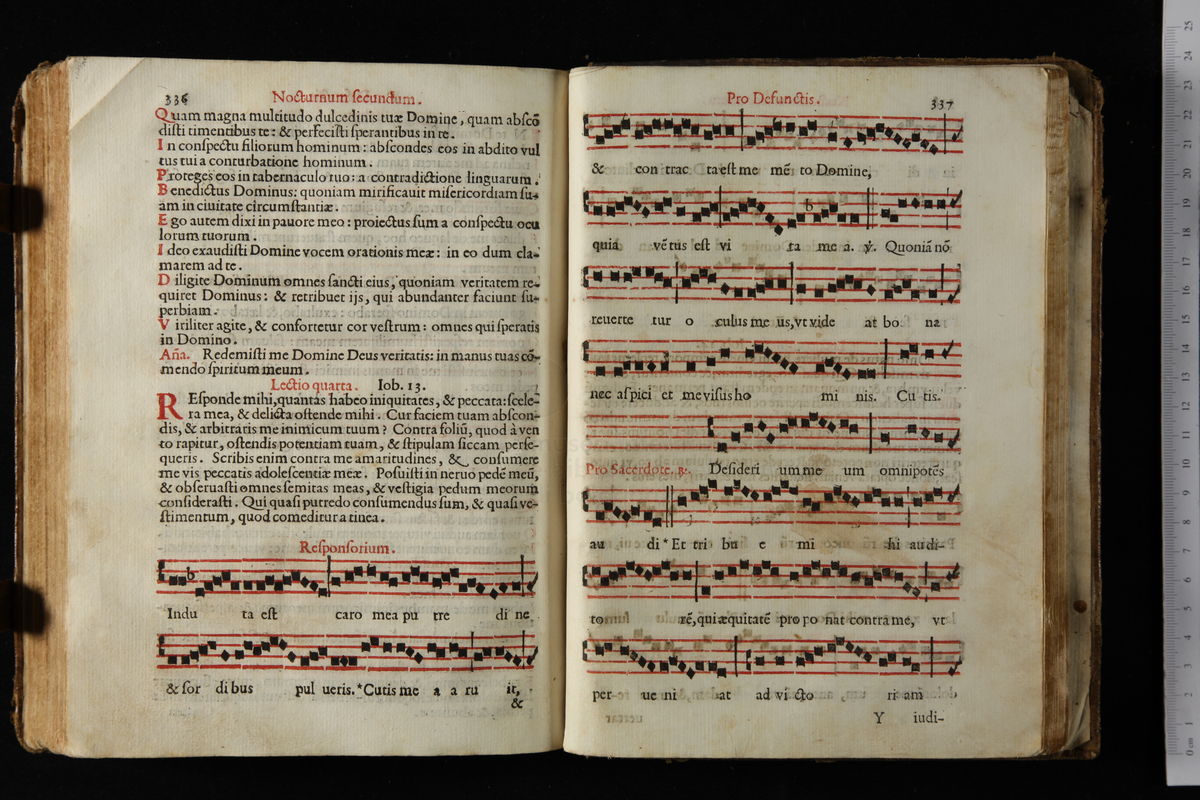 336
Nocturnum secundum.
Quam magna multitudo dulcedinis tuæ Domine, quam abscō
disti timentibus te: & perfecisti sperantibus in te.
In conspectu filiorum hominum: abscondes eos in abdito vul
tus tui a conturbatione hominum.
Proteges eos in tabernaculo tuo: a contradictione linguarum.
Benedictus Dominus: quoniam mirificauit misericordiam su-
am in ciuitate circumstantiæ.
Ego autem dixi in pauore meo: proiectus sum a conspectu ocu
lorum tuorum.
Ideo exaudisti Domine vocem orationis meæ: in eo dum cla-
marem ad te.
Diligite Dominum omnes sancti eius, quoniam veritatem re-
quiret Dominus: & retribuet ijs, qui abundanter faciunt su-
perbiam.
Viriliter agite, & confortetur cor vestrum: omnes qui speratis
in Domino.
Aña. Redemisti me Domine Deus veritatis: in manus tuas cō-
mendo spiritum meum.
Lectio quarta. Iob. 13.
REsponde mihi, quantas habeo iniquitates, & peccata: scele-
ra mea, & delicta ostende mihi. Cur faciem tuam abscon-
dis, & arbitraris me inimicum tuum? Contra foliũ, quod à ven
to rapitur, ostendis potentiam tuam, & stipulam siccam perse-
queris. Scribis enim contra me amaritudines, & consumere
me vis peccatis adolescentiæ meæ. Posuisti in neruo pedē meũ,
& obseruasti omnes semitas meas, & vestigia pedum meorum
considerasti. Qui quasi putredo consumendus sum, & quasi ve-
stimentum, quod comeditur a tinea.
Responsorium.
Indu ta est caro mea pu tre di ne
& sor di bus pul ueris.*Cutis me a a ru it,
&
Pro Defunctis.
337
& con trac ta est me mē to Domine,
quia vētus est vi ta me a. ỳ. Quoniā nō
reuerte tur o culus me us, vt vide at bo na
nec aspici et me visus ho mi nis. Cu tis.
Pro Sacerdote. ꝶ. Desideri um me um omnipotēs
au di * Et tri bu e mi hi audi-
to rē, qui æquitatē pro po nat contra me, vt
per ue ni at ad vi cto ri am
Y iudi-